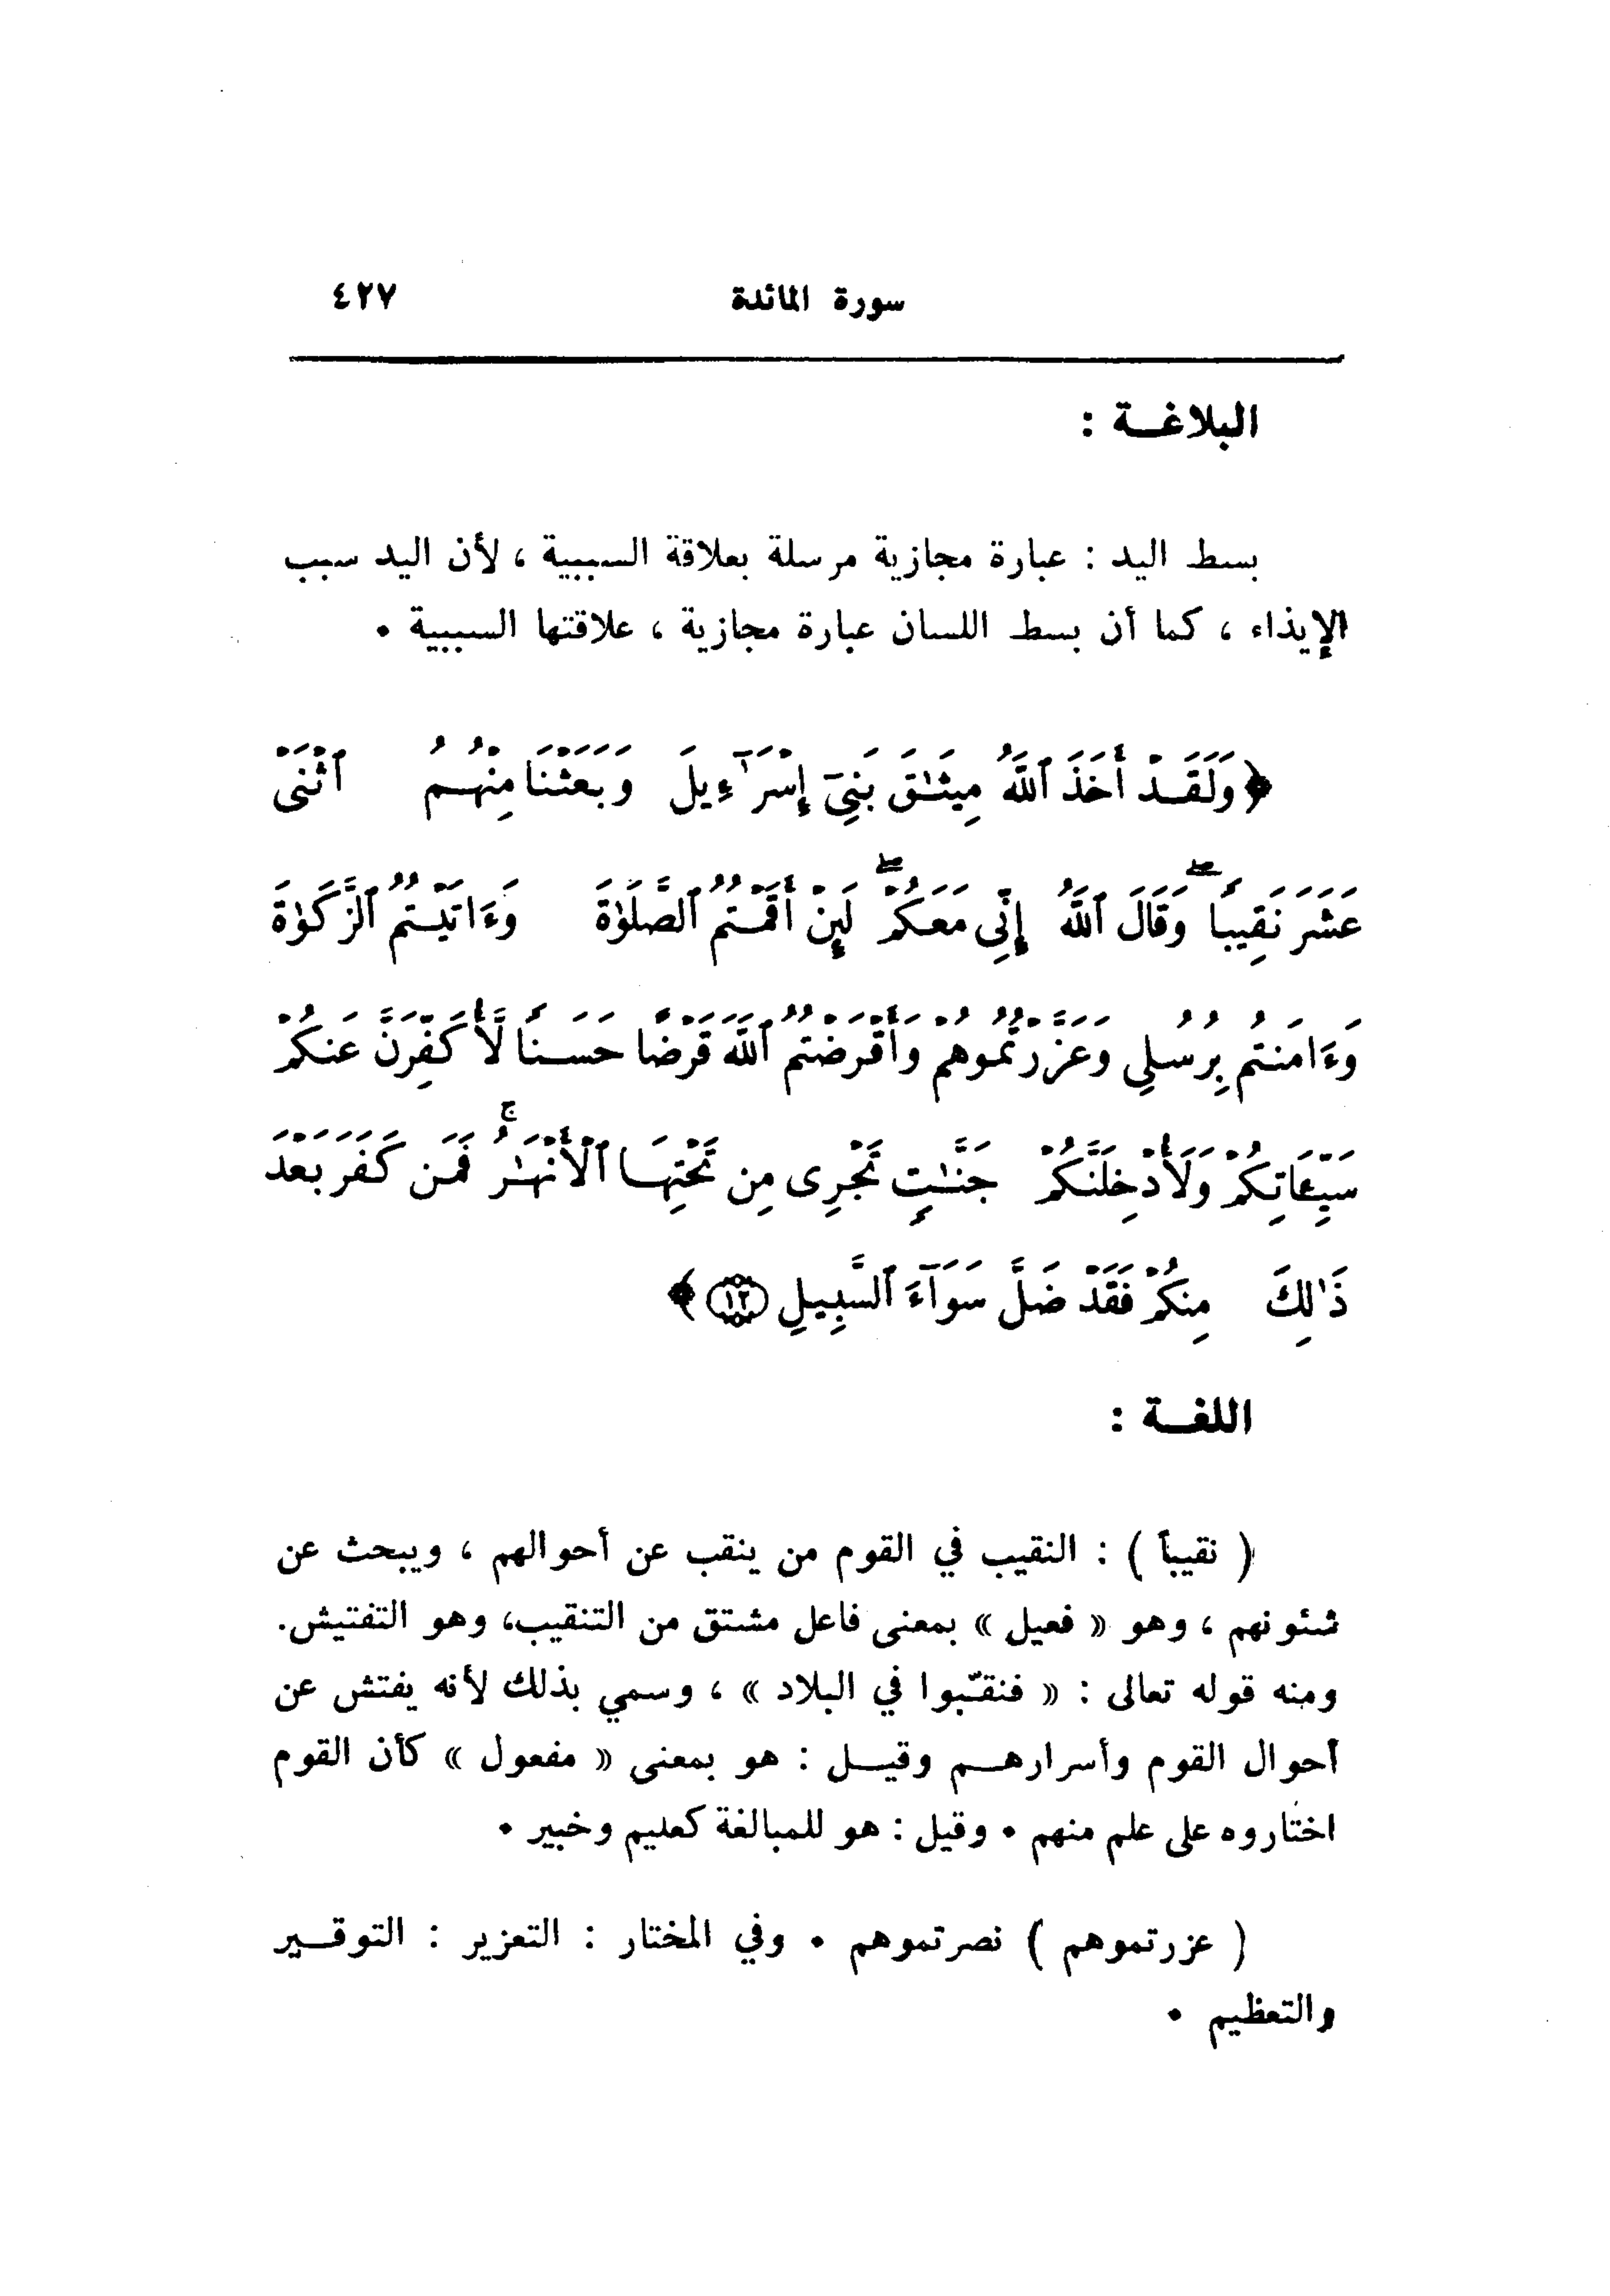 سورة المائدة ٤٢٧
البلاغـــة :
بسط اليد : عبارة مجازية مرسلة بعلاقة السببية ، لأن اليد سبب
الإيذاء ، كما أن بسط اللسان عبارة مجازية ، علاقتها السببية •
﴿وَلَقَدْ أَخَذَ ٱللَّهُ مِيثَٰقَ بَنِيٓ إِسْرَٰٓءِيلَ وَبَعَثْنَا مِنْهُمُ ٱثْنَىْ
عَشَرَ نَقِيبًاۖ وَقَالَ ٱللَّهُ إِنِّى مَعَكُمْۖ لَئِنْ أَقَمْتُمُ ٱلصَّلَوٰةَ وَءَاتَيْتُمُ ٱلزَّكَوٰةَ
وَءَامَنتُم بِرُسُلِى وَعَزَّرْتُمُوهُمْ وَأَقْرَضْتُمُ ٱللَّهَ قَرْضًا حَسَنًا لَّأُكَفِّرَنَّ عَنكُمْ
سَيِّـَٔاتِكُمْ وَلَأُدْخِلَنَّكُمْ جَنَّٰتٍ تَجْرِى مِن تَحْتِهَا ٱلْأَنْهَٰرُۚ فَمَن كَفَرَ بَعْدَ
ذَٰلِكَ مِنكُمْ فَقَدْ ضَلَّ سَوَآءَ ٱلسَّبِيلِ ﴿١٢﴾﴾
اللغـــة :
( نقيباً ) : النقيب في القوم من ينقب عن أحوالهم ، ويبحث عن
شئونهم ، وهو « فعيل » بمعنى فاعل مشتق من التنقيب، وهو التفتيش.
ومنه قوله تعالى : « فنقّبوا في البلاد » ، وسمي بذلك لأنه يفتش عن
أحوال القوم وأسرارهـــم وقيـــل : هو بمعنى « مفعول » كأن القوم
اختاروه على علم منهم • وقيل : هو للمبالغة كعليم وخبير •
( عزرتموهم ) نصرتموهم • وفي المختار : التعزير : التوقـــير
والتعظيم •